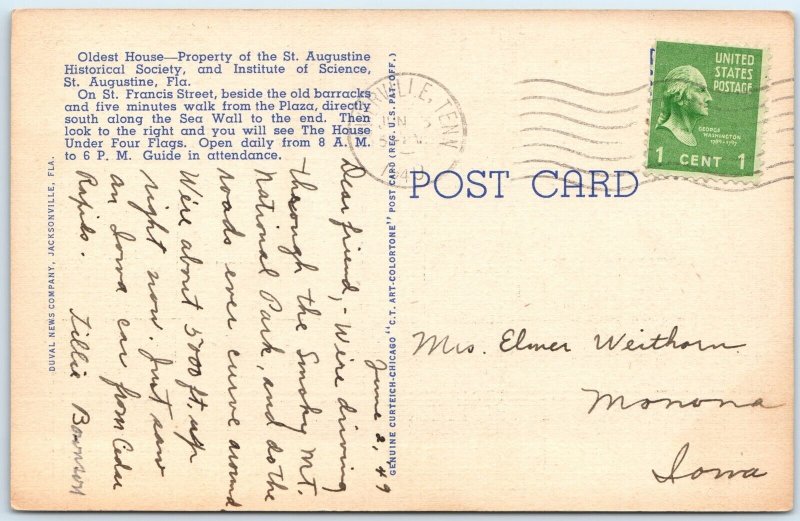 Oldest House—Property of the St. Augustine
Historical Society, and Institute of Science,
St. Augustine, Fla.
On St. Francis Street, beside the old barracks
and five minutes walk from the Plaza, directly
south along the Sea Wall to the end. Then
look to the right and you will see The House
Under Four Flags. Open daily from 8 A. M.
to 6 P. M. Guide in attendance.
DUVAL NEWS COMPANY, JACKSONVILLE, FLA.
June 2, '49
Dear friend,- We're driving
through the Smoky Mt.
National Park, and do the
roads ever curve around.
We're about 5000 ft. up
right now. Just saw
an Iowa car from Cedar
Rapids. Tillie
GENUINE CURTEICH-CHICAGO "C.T. ART-COLORTONE" POST CARD (REG. U.S. PAT. OFF.)
TENN
JUN
POST CARD
UNITED
STATES
POSTAGE
GEORGE
WASHINGTON
1789-1797
1 CENT 1
Mrs. Elmer Weithorn
Monona
Iowa